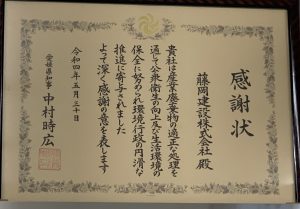 感謝状
藤岡建設株式会社 殿
貴社は産業廃棄物の適正な処理を
通じて公衆衛生の向上及び生活環境の
保全に努められ環境行政の円滑な
推進に寄与されました
よって深く感謝の意を表します
令和四年五月三十日
愛媛県知事 中村時広